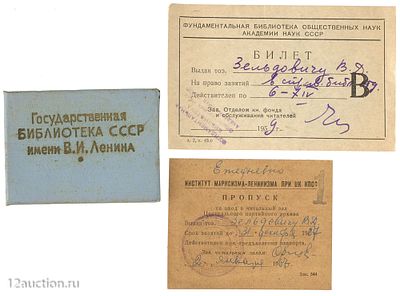 Государственная
БИБЛИОТЕКА СССР
имени В.И. Ленина
ФУНДАМЕНТАЛЬНАЯ БИБЛИОТЕКА ОБЩЕСТВЕННЫХ НАУК
АКАДЕМИИ НАУК СССР
БИЛЕТ
Выдан тов. Зельдовичу В.Д.
На право занятий в
Действителен по 6-XIV
В
Зав. Отделом кн. фонда
и обслуживания читателей
195 г.
Ежедневно
ИНСТИТУТ МАРКСИЗМА-ЛЕНИНИЗМА ПРИ ЦК КПСС
1
ПРОПУСК
на вход в читальный зал
Центрального партийного архива
Выдан тов. Зельдовичу В.Д.
Срок занятий до 31 декабря 1987
Действителен при предъявлении паспорта.
Зав. читальным залом
января
Зак. 544
12auction.ru